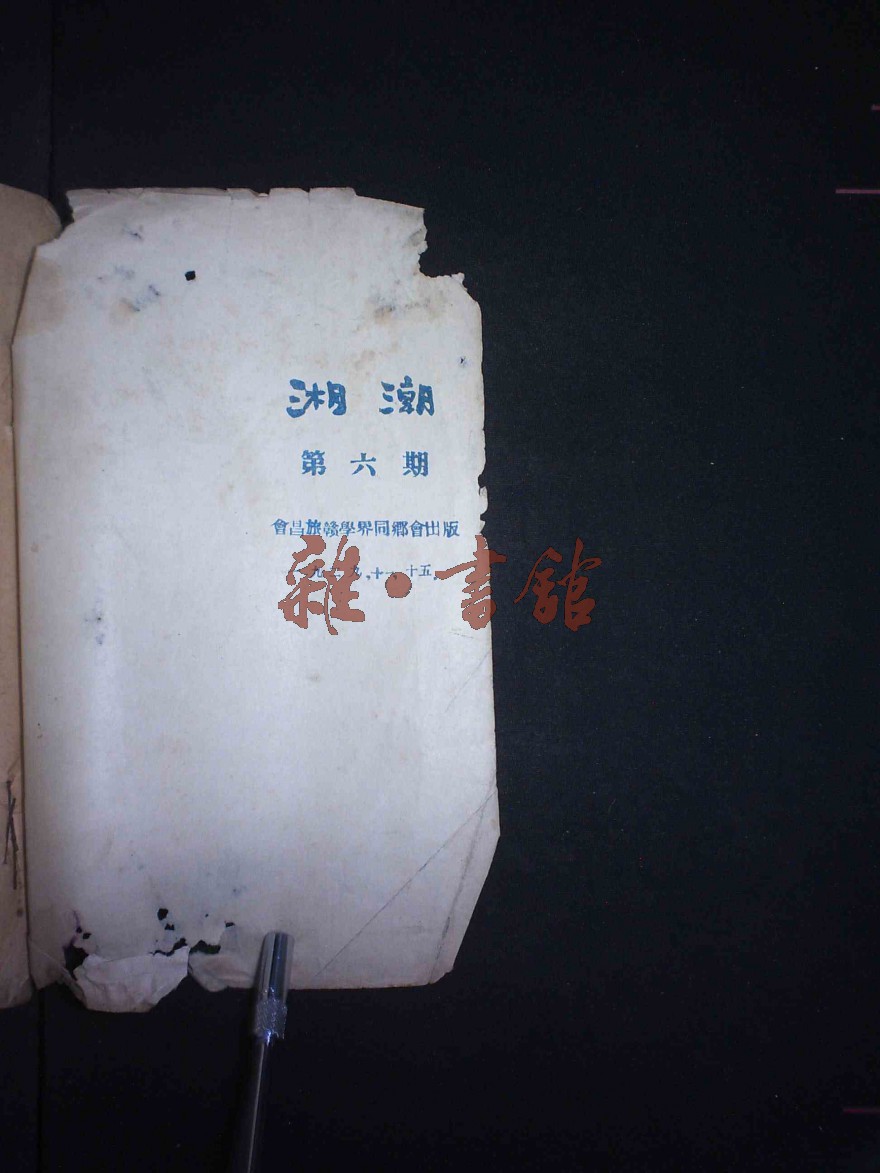 湘潮
第六期
會昌旅贛學界同鄉會出版
十五
雜·書館